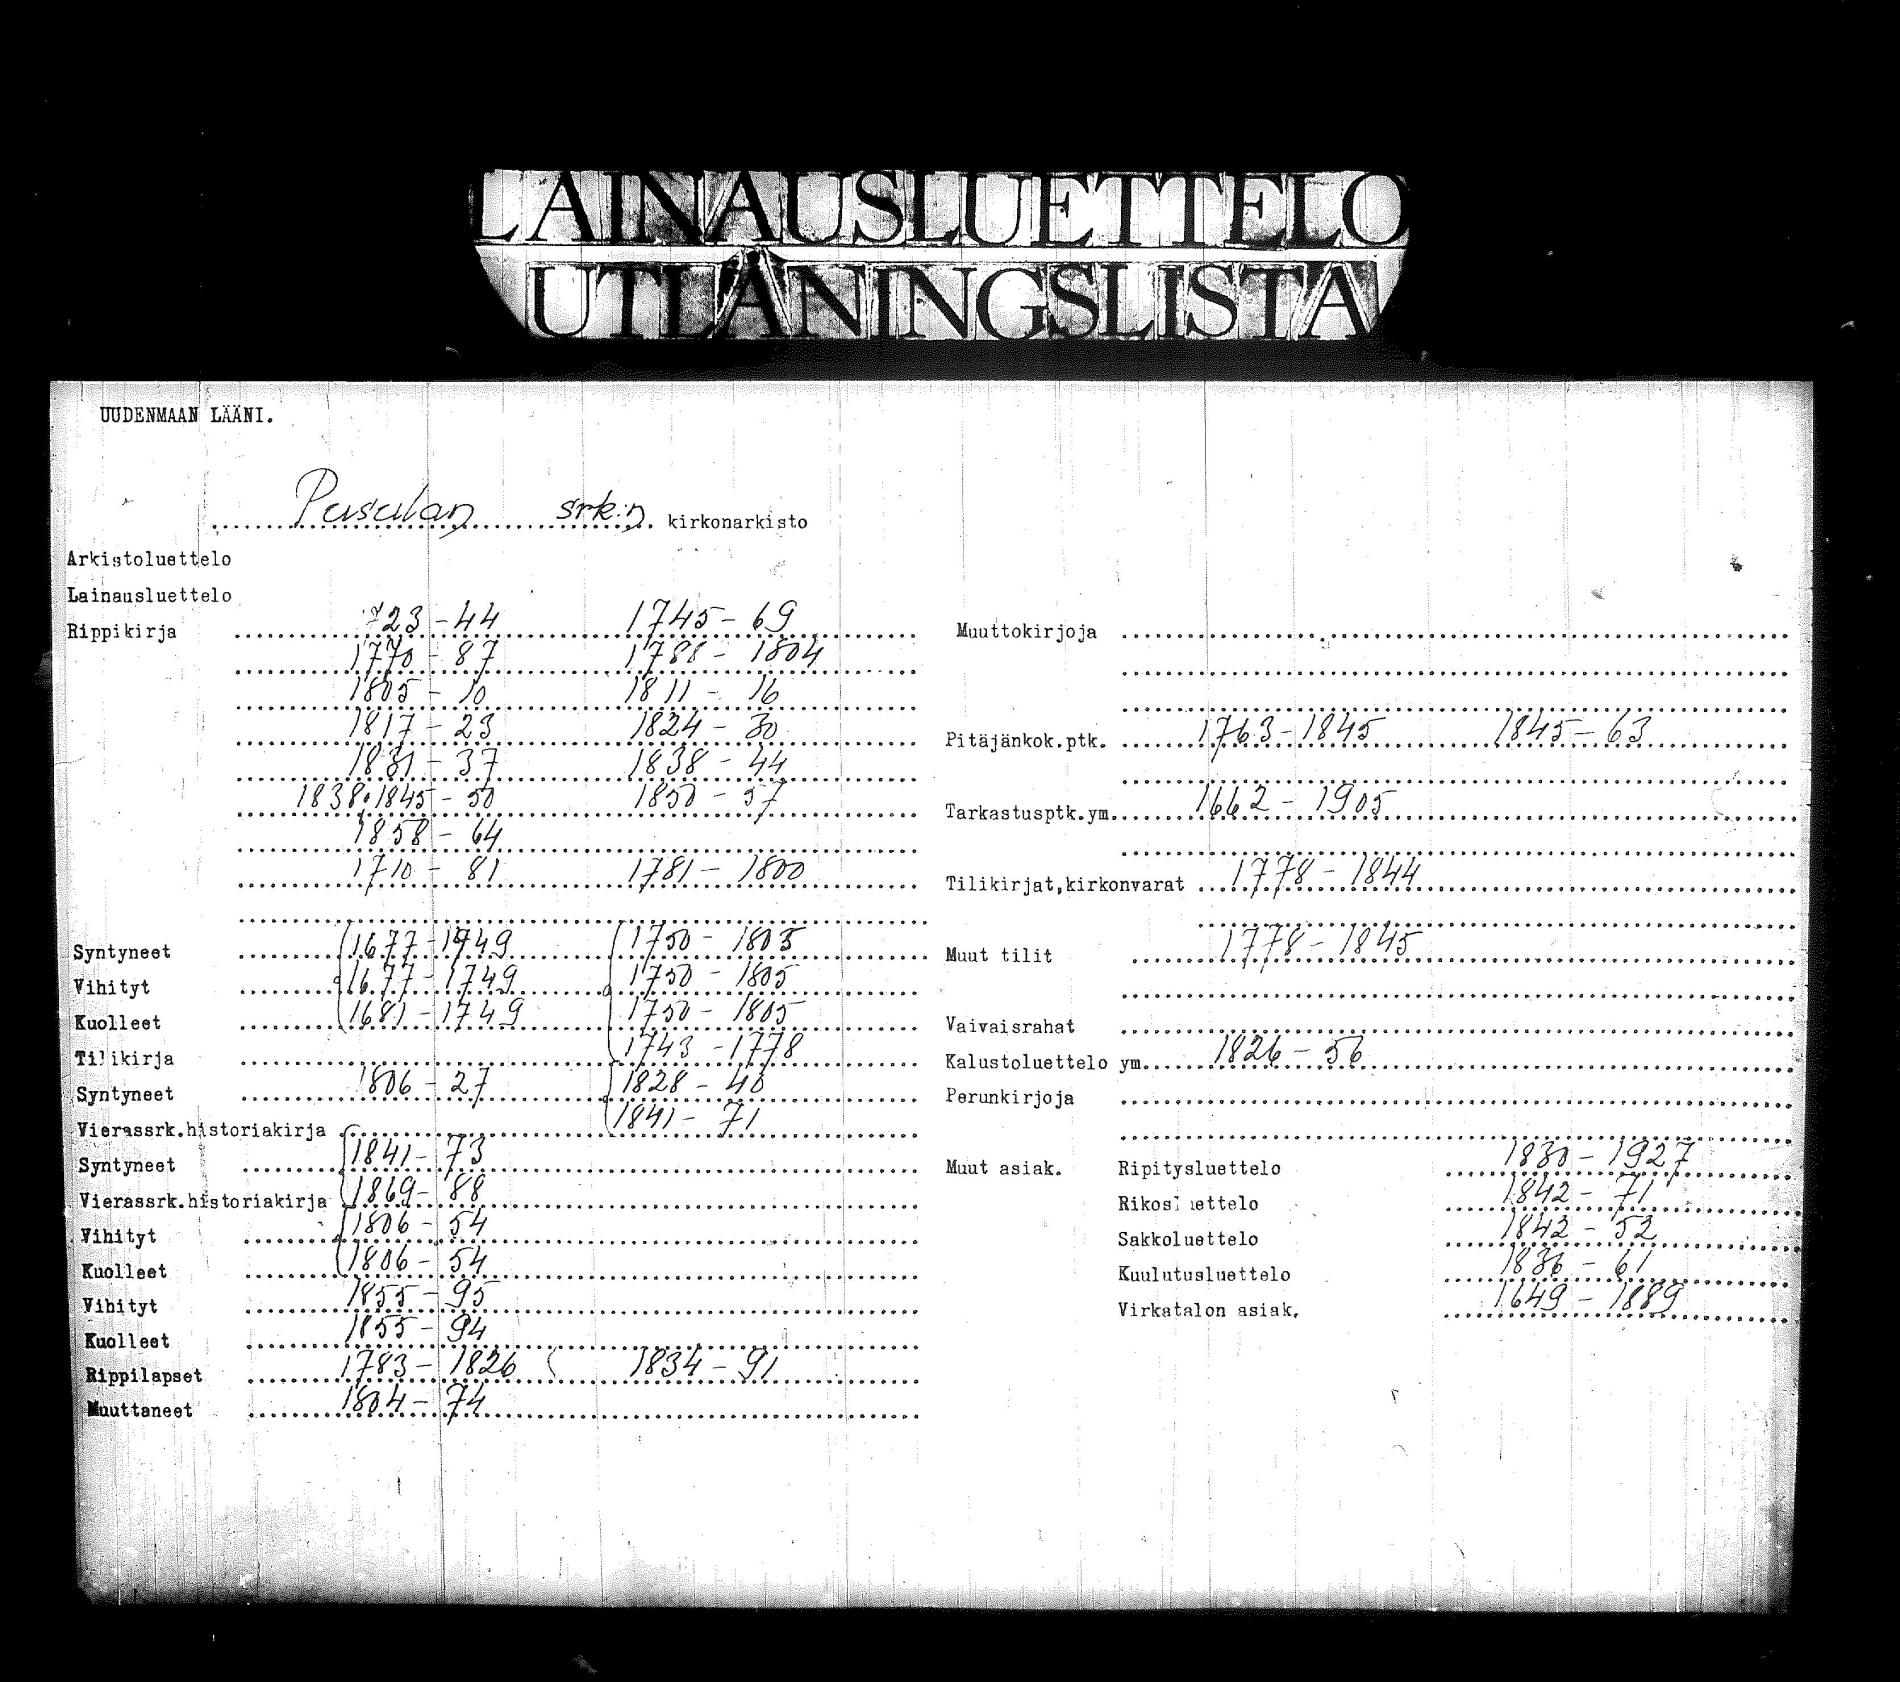 LAINAUSLUETTELO
UTLÅNINGSLISTA
UUDENMAAN LÄÄNI.
Pusulan srk:n kirkonarkisto
Arkistoluettelo
Lainausluettelo
Rippikirja 1723-44 1745-69
1770-87 1788-1804
1805-10 1811-16
1817-23 1824-30
1831-37 1838-44
1838.1845-50 1850-57
1858-64
1710-81 1781-1800
Syntyneet 1677-1749 1750-1805
Vihityt 1677-1749 1750-1805
Kuolleet 1681-1749 1750-1805
Tilikirja 1743-1778
Syntyneet 1806-27 1828-40
Vierassrk.historiakirja 1841-71
Syntyneet 1841-73
Vierassrk.historiakirja 1869-88
Vihityt 1806-54
Kuolleet 1806-54
Vihityt 1855-95
Kuolleet 1855-94
Rippilapset 1783-1826 1834-91
Muuttaneet 1804-74
Muuttokirjoja
Pitäjänkok.ptk. 1763-1845 1845-63
Tarkastusptk.ym. 1662-1905
Tilikirjat,kirkonvarat 1778-1844
Muut tilit 1778-1845
Vaivaisrahat
Kalustoluettelo ym. 1826-56
Perunkirjoja
Muut asiak. Ripitysluettelo 1830-1927
Rikosluettelo 1842-71
Sakkoluettelo 1842-52
Kuulutusluettelo 1836-61
Virkatalon asiak. 1649-1889